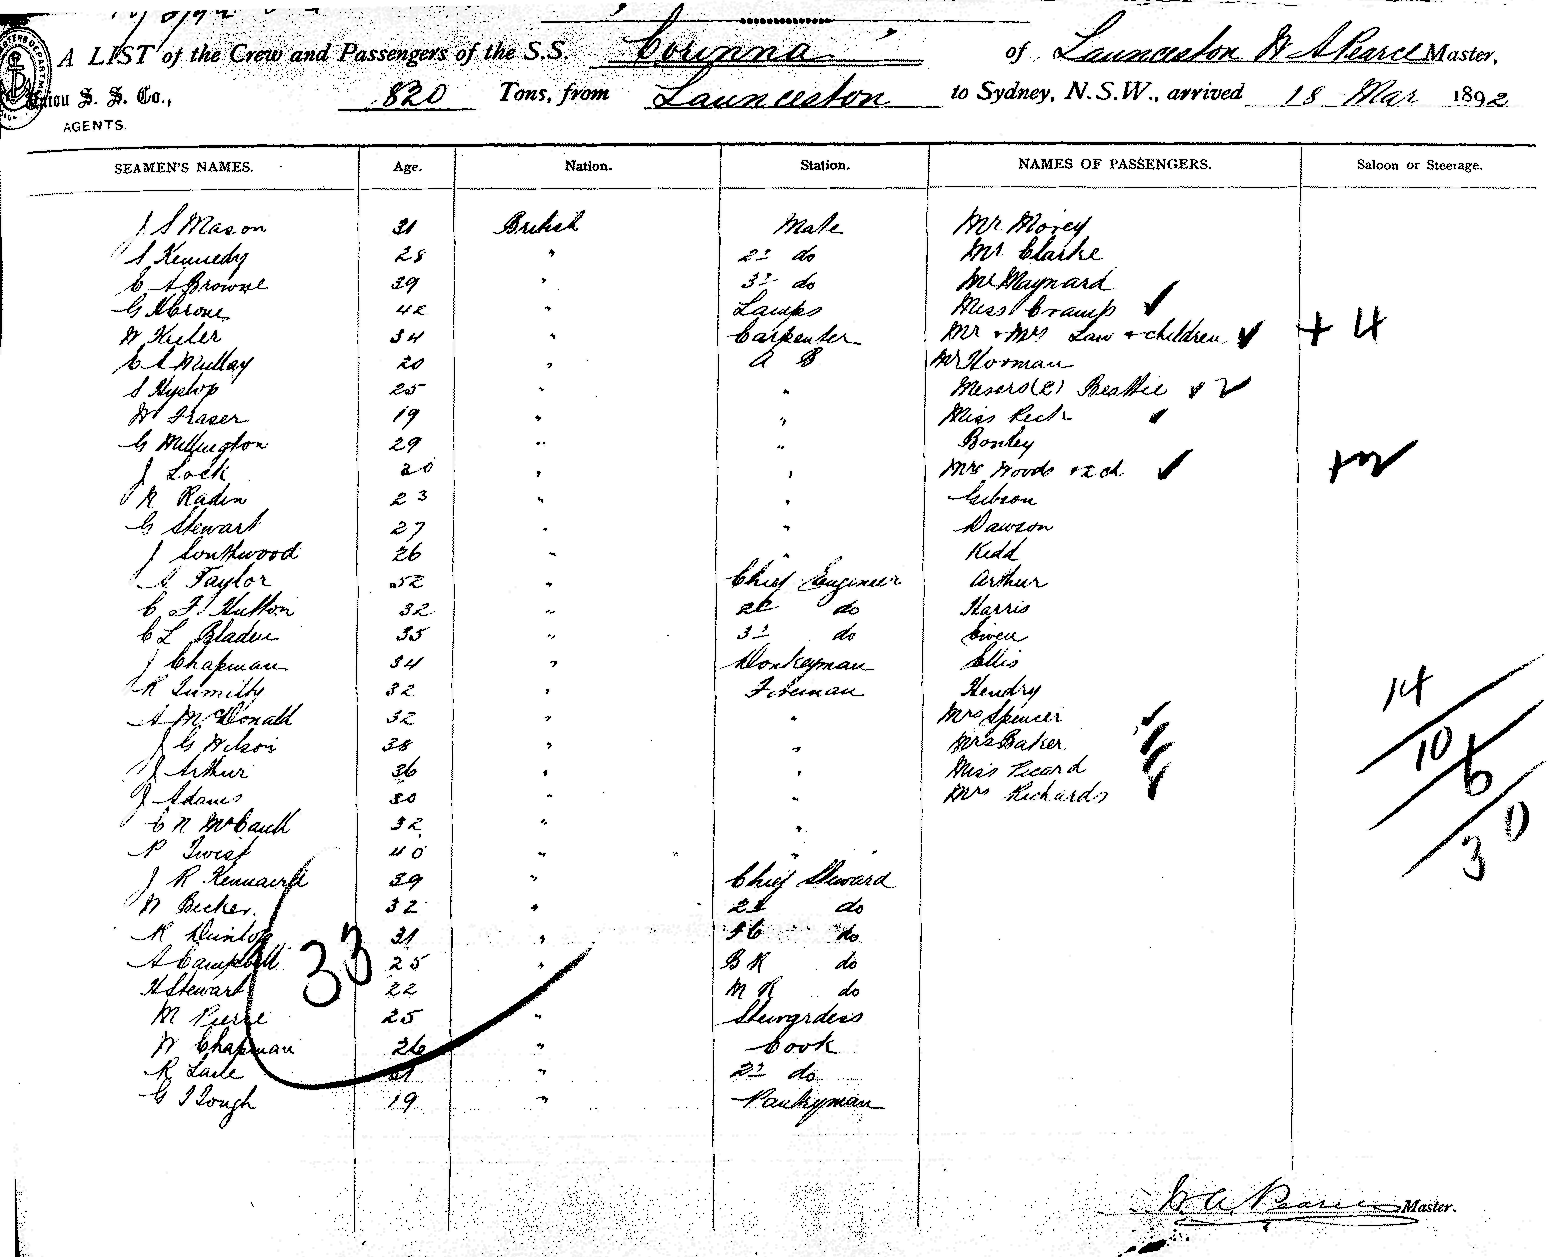 A LIST of the Crew and Passengers of the S.S. Corinna of Launceston W A Pearce Master,
Union S. S. Co., 820 Tons, from Launceston to Sydney, N.S.W., arrived 18 Mar 1892
AGENTS.
SEAMEN'S NAMES. Age. Nation. Station. NAMES OF PASSENGERS. Saloon or Steerage.
J S Mason 31 British Mate Mr Morey
S Kennedy 28 " 2d do Mr Clarke
C A Browne 39 " 3d do Mr Maynard
G H Crone 42 " Lamps Miss Cramp ✓
W 34 " Carpenter Mr + Mrs Law + children ✓ + 4
C A Mullay 20 " A B Mr Hooman
S Hyslop 25 " " Messrs (2) Beattie + 2 ✓
W Fraser 19 " " Miss Peck ✓
G Millington 29 " " Bonley
J Lock 20 " " Mrs Woods + 2 ch ✓ + 2
R Radin 23 " " Gibson
G Stewart 27 " " Dawson
J Southwood 26 " " Kidd
A Taylor 52 " Chief Engineer Arthur
C F Hutton 32 " 2d do Harris
C L Bladen 35 " 3d do Ewen
J Chapman 34 " Donkeyman Ellis
R 32 " Fireman Hendry
A McDonald 32 " " Mrs Spencer ✓
J G Wilson 38 " " Mrs Baker ✓
J Arthur 36 " " Miss Picard ✓
J Adams 30 " " Mrs Richards ✓
14
10
6
30
C N McCaull 32 " "
P Twist 40 " "
J R Kennaird 39 " Chief Steward
W Becker 32 " 2d do
R Dunlop 31 " F C do
A Campbell 25 " B R do
H Stewart 22 M R do
33
M Pierre 25 " Stewardess
W Chapman 26 " Cook
R Lade 21 " 2d do
G J Gough 19 " Pantryman
W A Pearce Master.